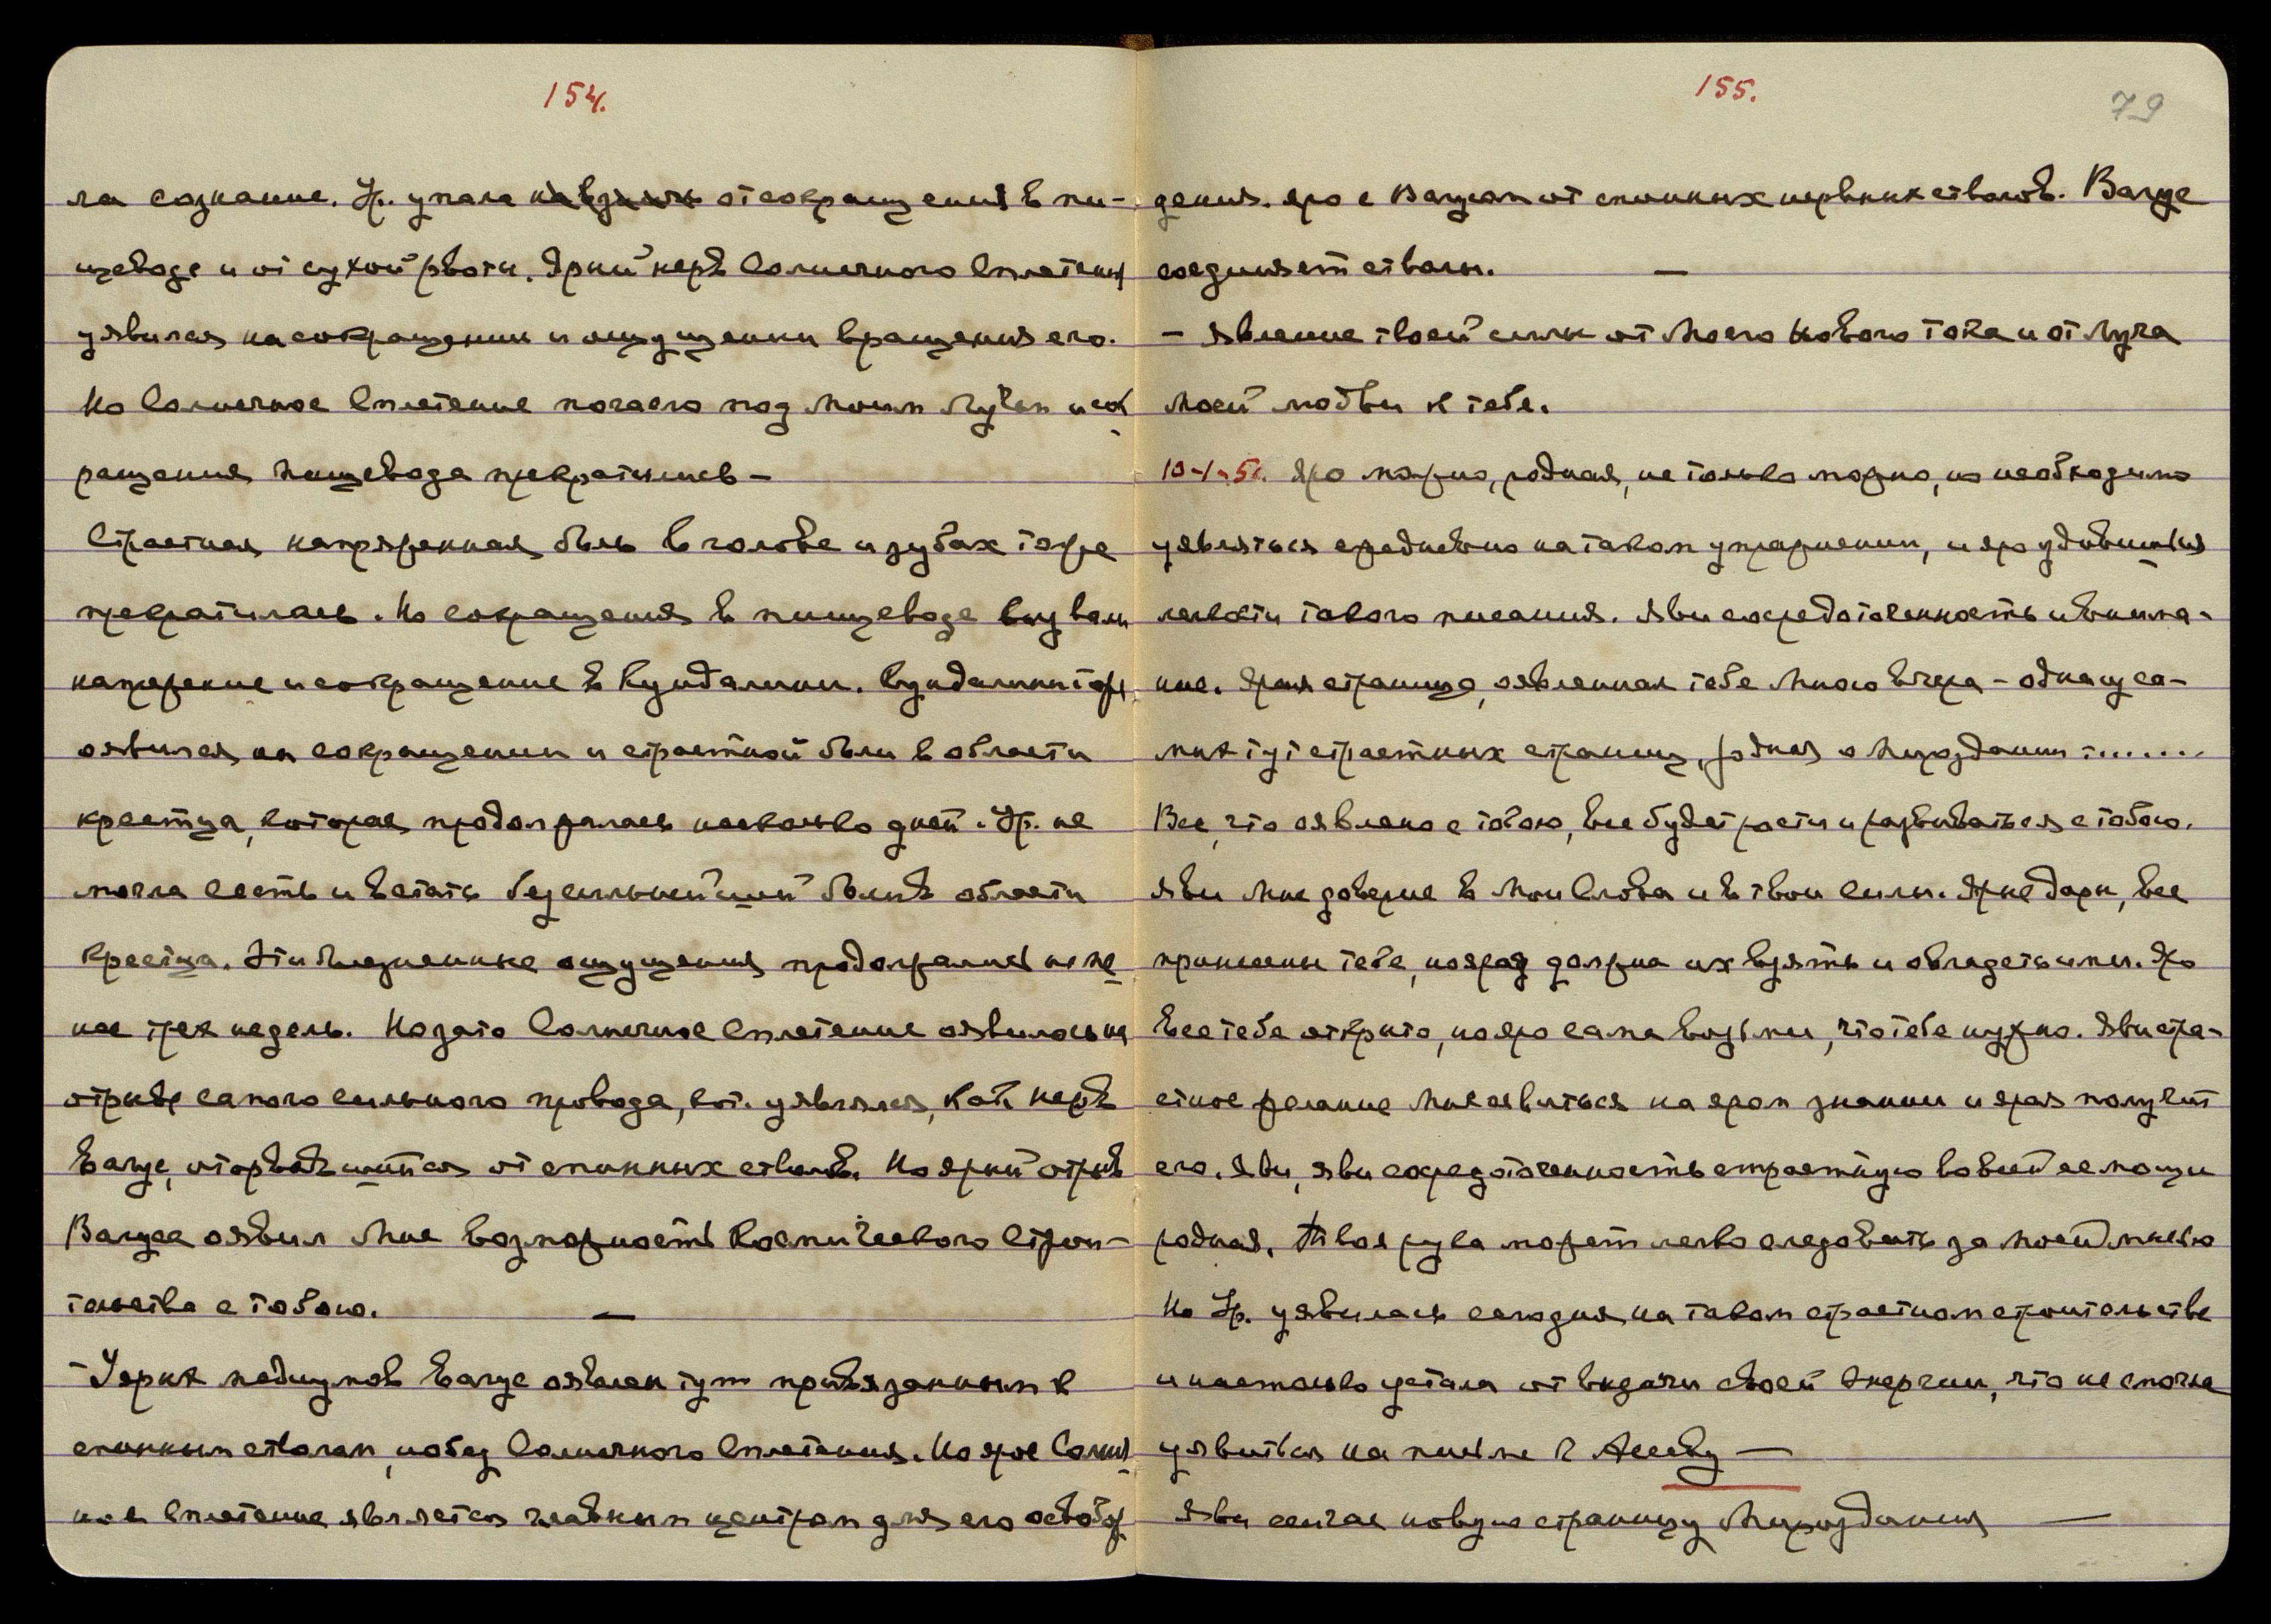 154.
ла сознание. Ур. упала навзничь от сокращения в пи-
щеводе и от сухой рвоты. Ярый нерв Солнечного Сплетения
уявился на сокращении и ощущении вращения его.
Но Солнечное Сплетение погасло под Моим Лучем и сок
ращения пищевода прекратились –
Страстная напряженная боль в голове и зубах тоже
прекратилась. Но сокращения в пищеводе вызвали
напряжение и сокращение в Кундалини. Кундалини тоже
оявился на сокращении и страстной боли в области
крестца, которая продолжалась несколько дней. Ур. не
могла сесть и встать без сильнейшей боли в области
крестца. Эти болезненные ощущения продолжались не ме
нее трех недель. Но зато Солнечное Сплетение оявилось на
отрыве самого сильного провода, кот. уявлялся, как нерв
Вагус, оторвавшийся от спинных стволов. Но ярый отрыв
Вагуса оявил Мне возможность Космического Строи-
тельства с тобою. —
– У ярых медиумов Вагус оявлен тут привязанным к
спинным стволам, но без Солнечного Сплетения. Но ярое Солнеч
ное Сплетение является главным центром для его освобож
155.
79
дения. яро с Вагусом от спинных нервных стволов. Вагус
соединяет стволы. —
– Явление твоей силы от Моего Нового тока и от Луча
Моей любви к тебе.
10-1-51. Яро можно, родная, не только можно, но необходимо
уявляться ежедневно на таком упражнении, и яро удивишься
легкости такого писания. Яви сосредоточенность и внима-
ние. Ярая страница, оявленная тебе Мною вчера – одна из са-
мых страстных страниц, родная о Мироздании :.......
Все, что оявлено с тобою, все будет расти и развиваться с тобою.
Яви Мне доверие в Мои Слова и в твои силы. Ярые дары, все
принесены тебе, но яро должна их взять и овладеть ими. Яро
все тебе открыто, но яро сама возьми, что тебе нужно. Яви стра-
стное желание Мне явиться на яром знании и ярая получит
его. Яви, яви сосредоточенность страстную во всей ее мощи
родная. Твоя рука может легко следовать за Моей мыслью
Но Ур. уявилась сегодня на таком страстном строительстве
и настолько устала от выдачи своей энергии, что не смогла
уявиться на письме к Асееву —
Яви сейчас новую страницу Мироздания —